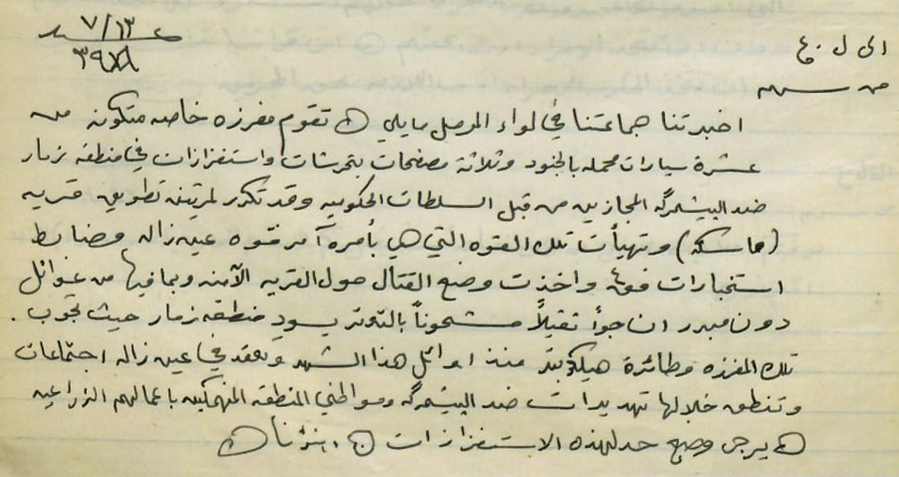 الى ل ٤٠
٧/١٣
من
اخبرتنا جماعتنا في لواء الموصل مايلي ( ) تقوم مفرزه خاصه متكونه من
عشرة سيارات محمله بالجنود وثلاثة مصفحات بتحرشات واستفزازات في منطقة زمار
ضد البيشمرگه المجازين من قبل السلطات الحكوميه وقد تكرر لمرتين تطويق قريه
( ) وتهيأت تلك القوه التي هي بأمرة آمر قوه عين زاله وضابط
استخبارات واخذت وضع القتال حول القريه الآمنه وبما فيها من عوائل
دون مبرر ان جواً ثقيلاً مشحوناً بالتوتر يسود منطقه زمار حيث تجوب
تلك المفرزه وطائرة هيلكوبتر منذ اوائل هذا الشهر وتعقد في عين زاله اجتماعات
وتنطلق خلالها تهديدات ضد البيشمرگه ومواطني المنطقه المنهمكين باعمالهم الزراعيه
( ) يرجى وضع حد لهذه الاستفزازات ( ) انبؤنا ( )